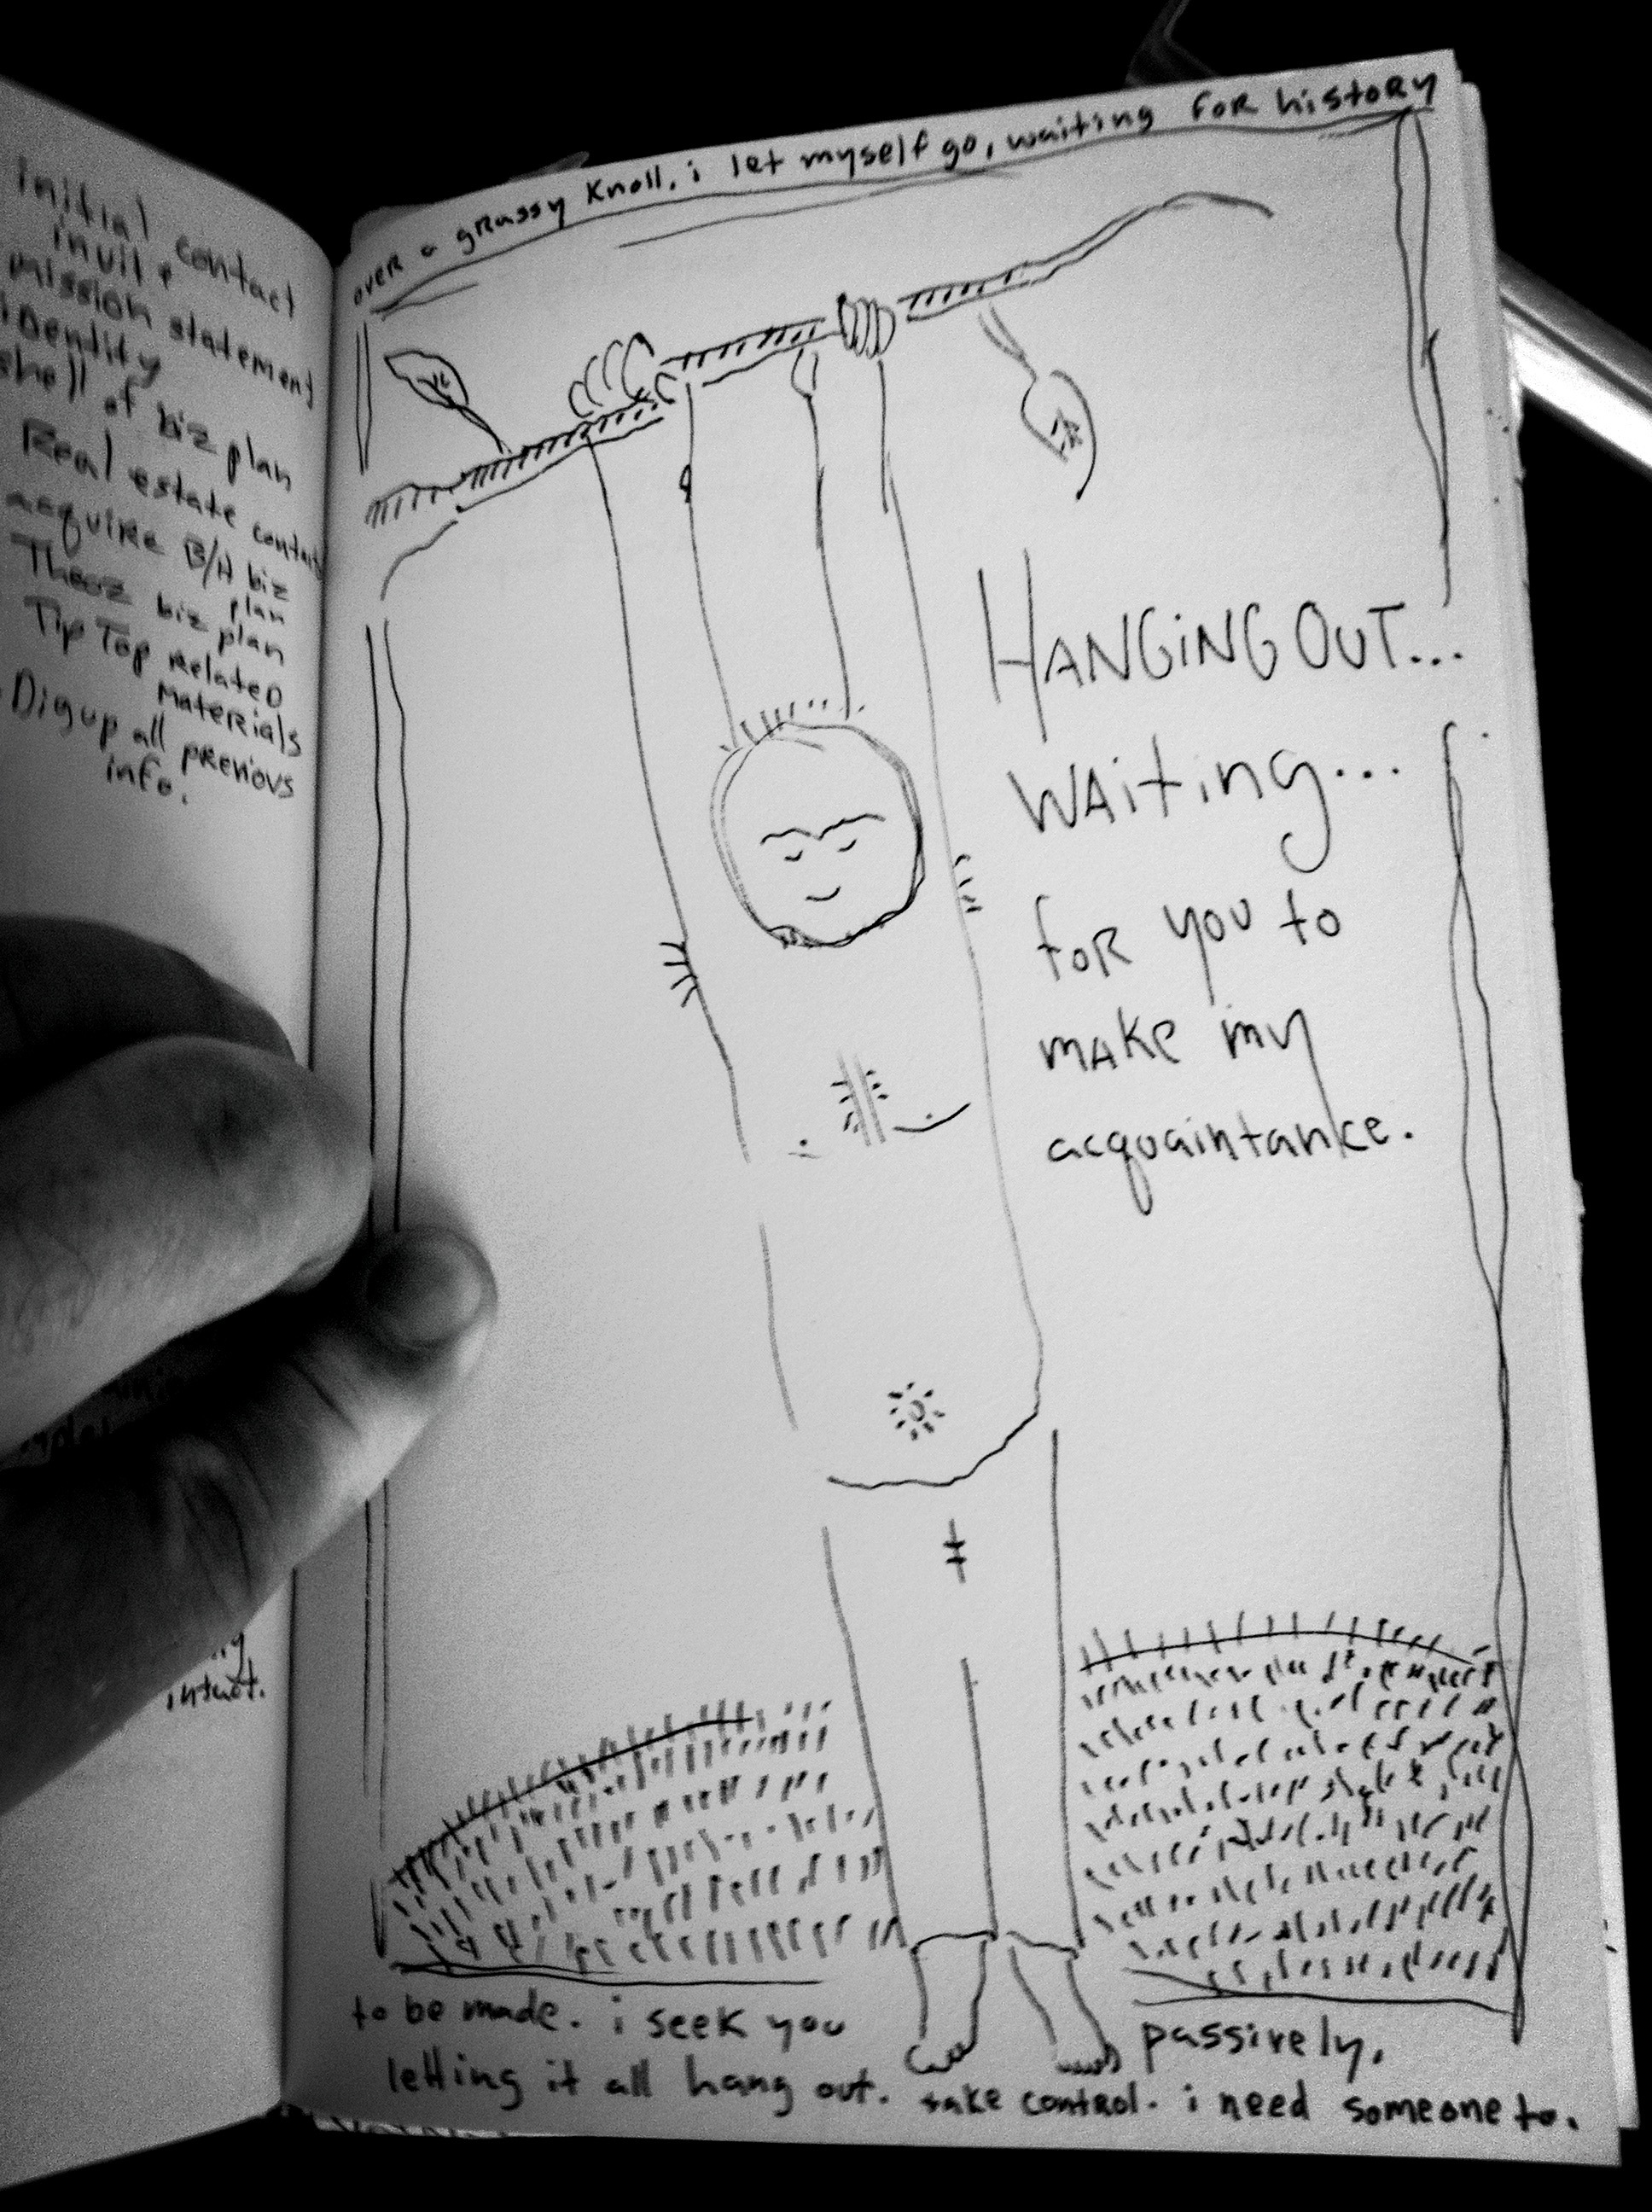 initial contact
invite
mission statement
identity
shell of biz plan
Real estate contacts
acquire B/H biz
plan
biz plan
Tip Top Related
Materials
Dig up all previous
info.
intact.
over a grassy Knoll, i let myself go, waiting for history
HANGiNG OUT...
WAiting...
for you to
make my
acquaintance.
to be made. i seek you passively,
letting it all hang out. take control. i need someone to.